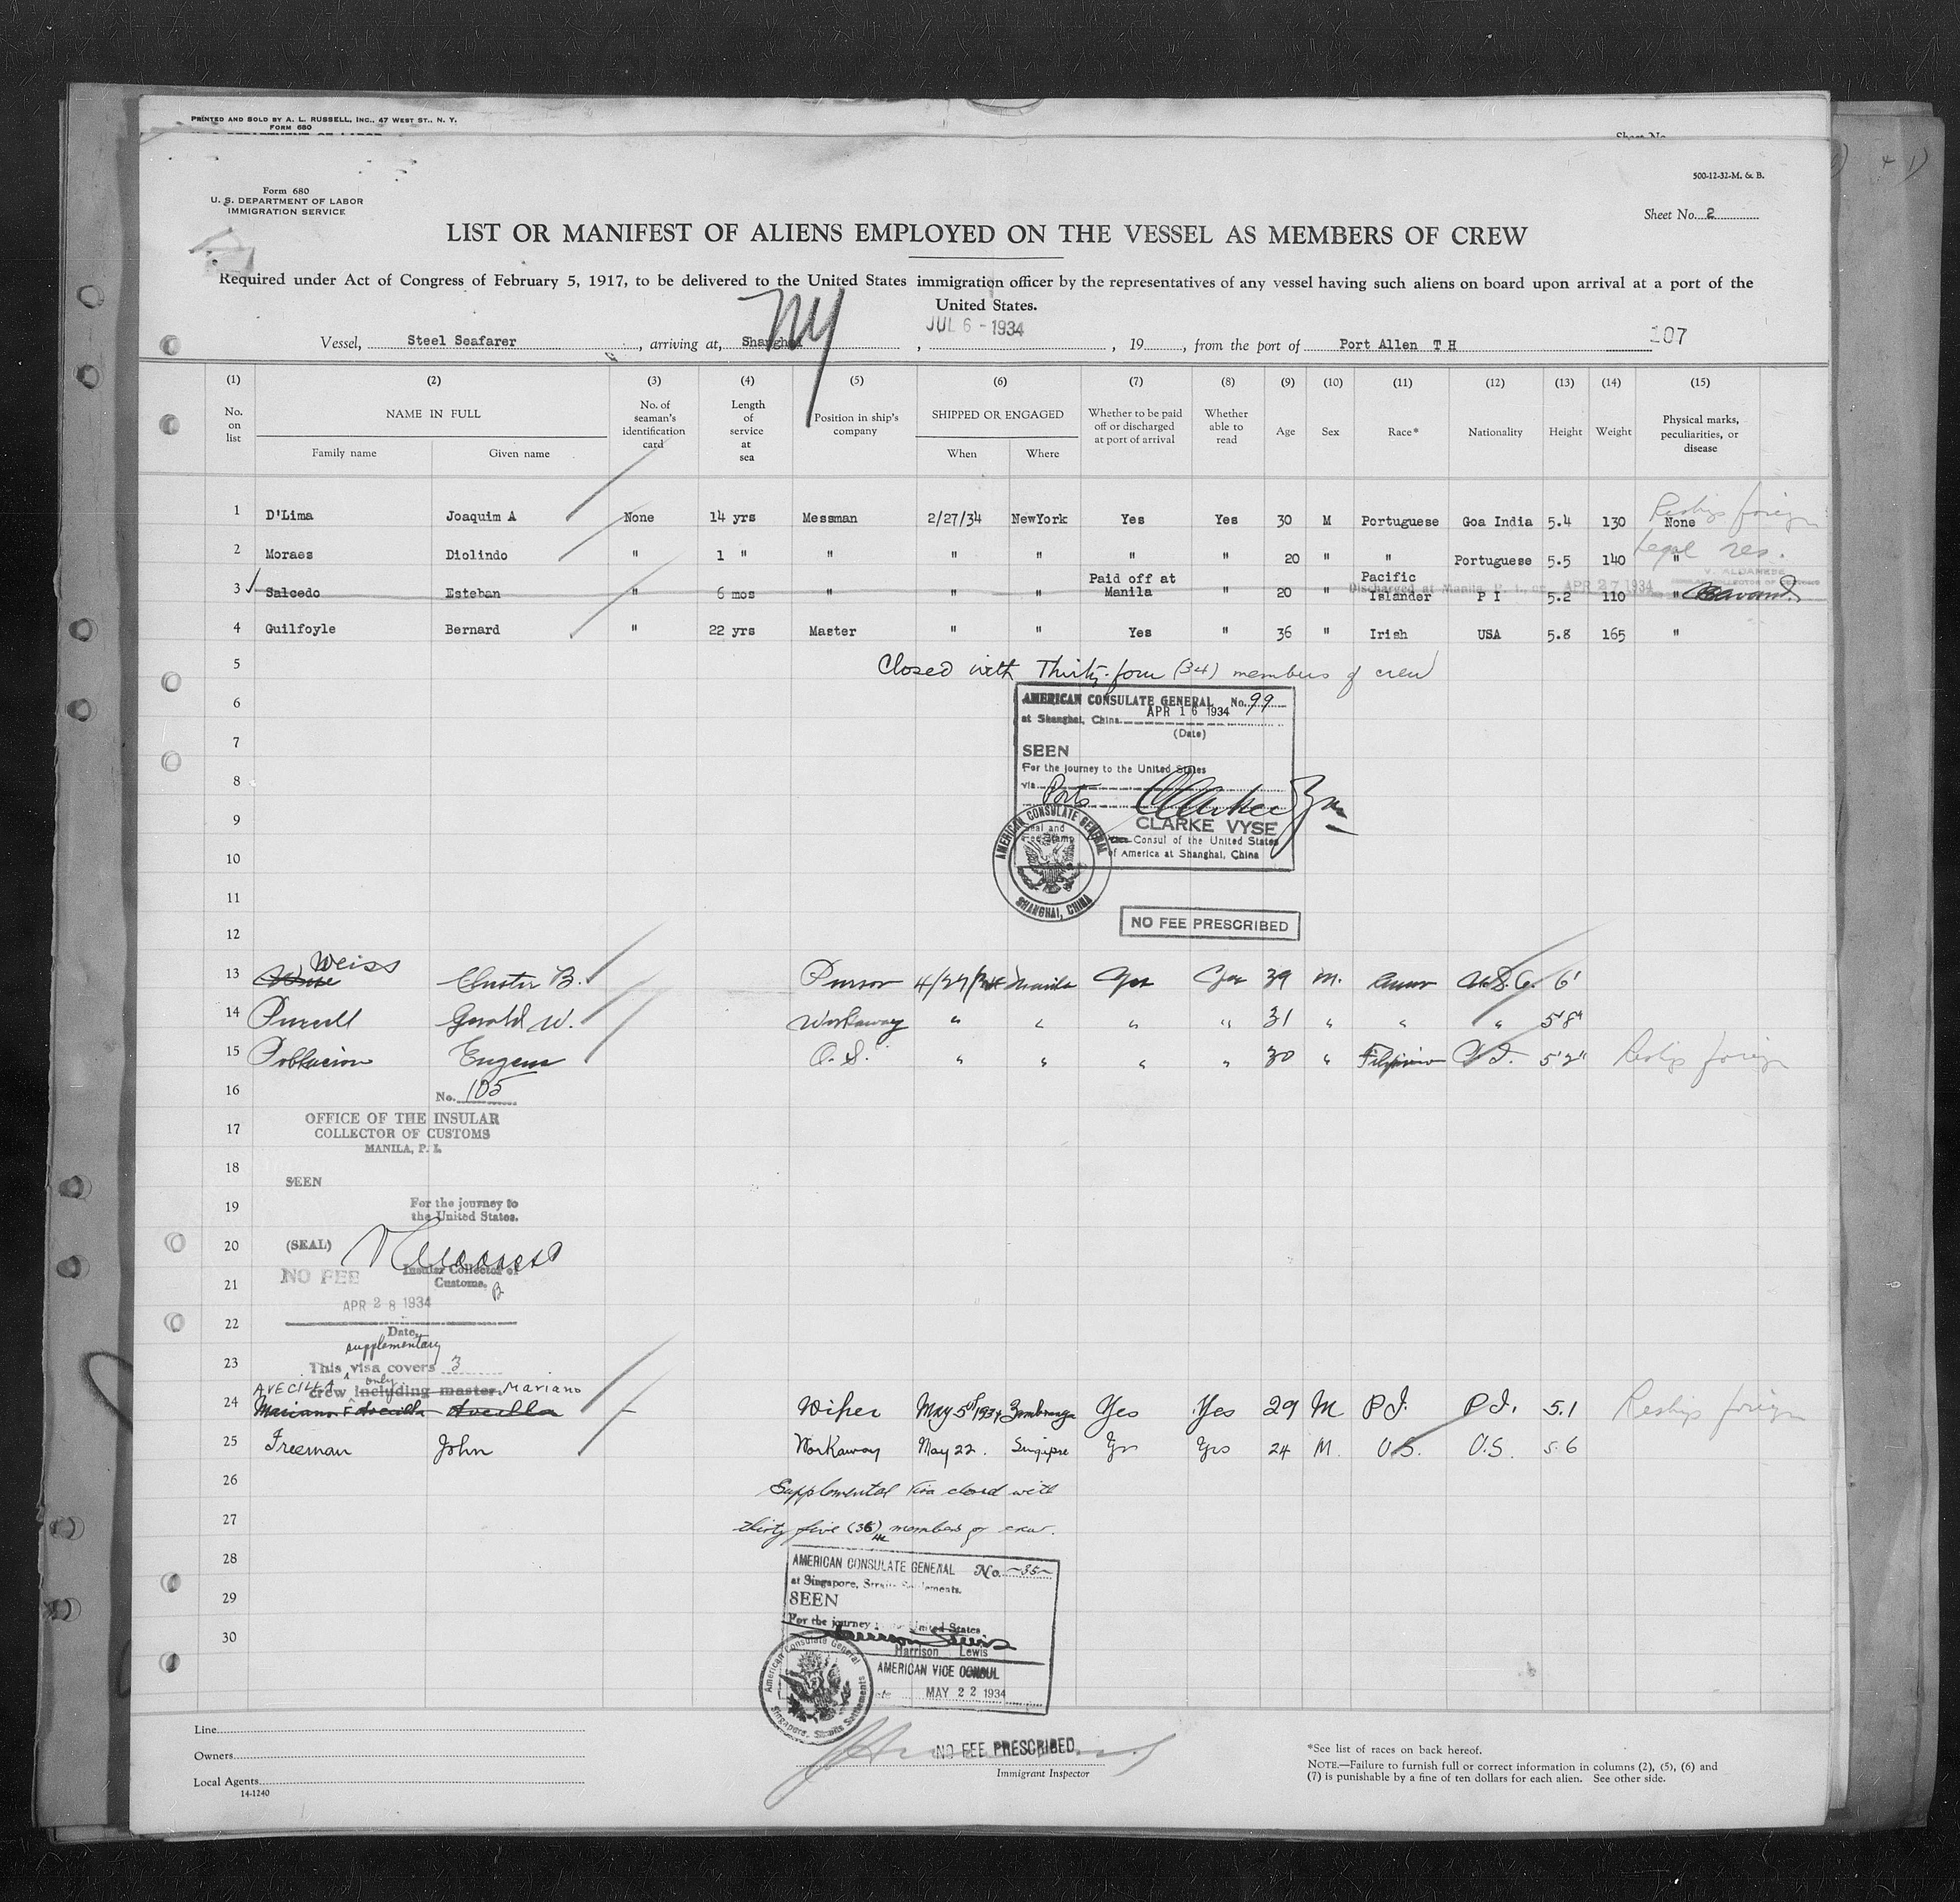 PRINTED AND SOLD BY A. L. RUSSELL, INC., 47 WEST ST., N. Y.
FORM 680
Sheet No.
500-12-32-M. & B.
Form 680
U. S. DEPARTMENT OF LABOR
IMMIGRATION SERVICE
Sheet No. 2
LIST OR MANIFEST OF ALIENS EMPLOYED ON THE VESSEL AS MEMBERS OF CREW
Required under Act of Congress of February 5, 1917, to be delivered to the United States immigration officer by the representatives of any vessel having such aliens on board upon arrival at a port of the
United States.
NY
JUL 6 - 1934
Vessel, Steel Seafarer, arriving at, Shanghai, , 19 , from the port of Port Allen T H
107
(1) (2) (3) (4) (5) (6) (7) (8) (9) (10) (11) (12) (13) (14) (15)
No. on list
NAME IN FULL
Family name Given name
No. of seaman's identification card
Length of service at sea
Position in ship's company
SHIPPED OR ENGAGED
When Where
Whether to be paid off or discharged at port of arrival
Whether able to read
Age Sex Race* Nationality Height Weight
Physical marks, peculiarities, or disease
1 D'Lima Joaquim A None 14 yrs Messman 2/27/34 NewYork Yes Yes 30 M Portuguese Goa India 5.4 130 None Reships foreign
2 Moraes Diolindo " 1 " " " " " " 20 " " Portuguese 5.5 140 " Legal res.
3 Salcedo Esteban " 6 mos " " " Paid off at Manila " 20 " Pacific Islander P I 5.2 110 "
Discharged at Manila, P. I., on APR 27 1934
V. ALDANESE
INSULAR COLLECTOR OF CUSTOMS
4 Guilfoyle Bernard " 22 yrs Master " " Yes " 36 " Irish USA 5.8 165 "
5
Closed with Thirty-four (34) members of crew
6
AMERICAN CONSULATE GENERAL No. 99
at Shanghai, China APR 16 1934
(Date)
7
SEEN
For the journey to the United States
8
via Ports
9
CLARKE VYSE
Consul of the United States
of America at Shanghai, China
Seal and Fee Stamp
AMERICAN CONSULATE GENERAL
SHANGHAI, CHINA
10
11
NO FEE PRESCRIBED
12
13 Weiss Chester B. Pursor 4/27/34 Manila Yes Yes 39 M. Amer U.S.A. 6'
14 Purcell Gerald W. Workaway " " " " 31 " " " 5'8"
15 Poblacion Eugene O.S. " " " " 30 " Filipino P.I. 5'2" Reships foreign
16 No. 105
17 OFFICE OF THE INSULAR
COLLECTOR OF CUSTOMS
MANILA, P. I.
18 SEEN
19 For the journey to
the United States.
20 (SEAL)
Insular Collector of
21 NO FEE Customs,
B
APR 28 1934
22
Date,
supplementary
23 This visa covers 3
only
crew including master
24 AVECILLA Mariano Wiper May 5th 1934 Zamboanga Yes Yes 29 M P.I. P.I. 5.1 Reships foreign
Mariano F Avecilla Avecilla
25 Freeman John Workaway May 22. Singapore Yes Yes 24 M. U.S. U.S. 5.6
26 Supplemental Visa closed with
27 thirty five (35) members of crew.
28 AMERICAN CONSULATE GENERAL No. -35-
at Singapore, Straits Settlements.
29 SEEN
For the journey to the United States
30
Harrison Lewis
AMERICAN VICE CONSUL
MAY 22 1934
American Consulate General
Singapore, Straits Settlements
Line
Owners
Local Agents
14-1240
NO FEE PRESCRIBED
Immigrant Inspector
*See list of races on back hereof.
NOTE.—Failure to furnish full or correct information in columns (2), (5), (6) and
(7) is punishable by a fine of ten dollars for each alien. See other side.